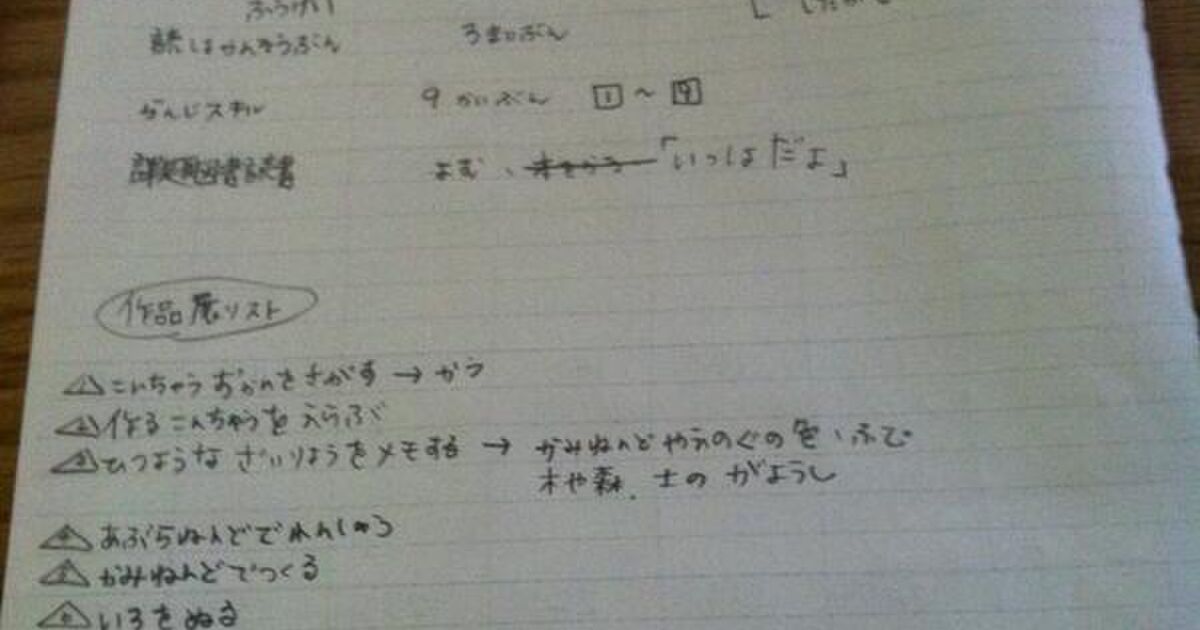 ふうけい
読しょかんそうぶん ろまいぶん
かんじスキル 9かいぶん 1～9
よむ、「いっしょだよ」
作品展リスト
1 こんちゅうずかんをさがす→かう
2 作るこんちゅうをえらぶ
3 ひつようなざいりょうをメモする→かみねんどやえのぐの色、ふで
木や森、土のがようし
4 あぶらねんどでれんしゅう
5 かみねんどでつくる
6 いろをぬる